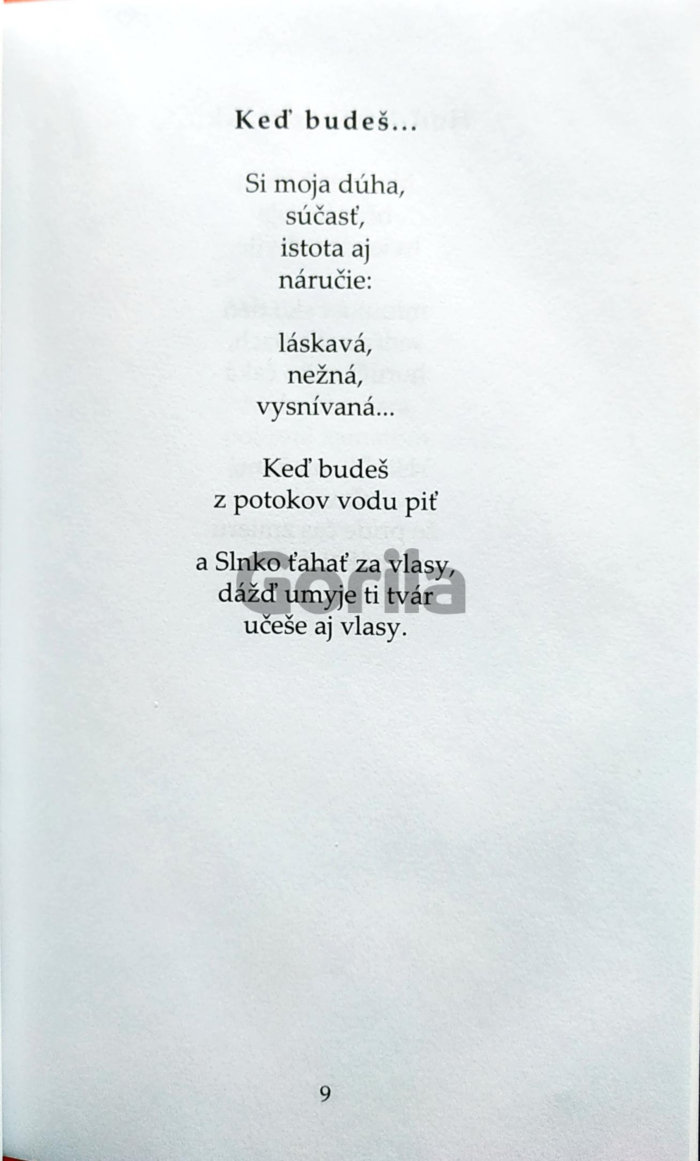 Keď budeš...
Si moja dúha,
súčasť,
istota aj
náručie:
láskavá,
nežná,
vysnívaná...
Keď budeš
z potokov vodu piť
a Slnko ťahať za vlasy,
Gorila
dážď umyje ti tvár
učeše aj vlasy.
9